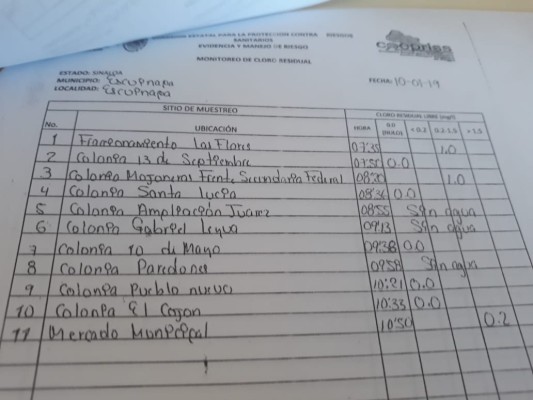 ESTATAL PARA LA PROTECCION CONTRA RIESGOS
SANITARIOS
EVIDENCIA Y MANEJO DE RIESGO
MONITOREO DE CLORO RESIDUAL
ESTADO: SINALOA
MUNICIPIO: Escuinapa FECHA: 10-01-19
LOCALIDAD: Escuinapa
SITIO DE MUESTREO CLORO RESIDUAL LIBRE (mg/l)
No. UBICACIÓN HORA 0.0 (NULO) < 0.2 0.2-1.5 > 1.5
1 Fraccionamiento Las Flores 07:35 1.0
2 Colonia 13 de Septiembre 07:50 0.0
3 Colonia Magoneros Frente Secundaria Federal 08:20 1.0
4 Colonia Santa Lucia 08:36 0.0
5 Colonia Ampliación Juarez 08:55 Sin agua
6 Colonia Gabriel Leyva 09:13 Sin agua
7 Colonia 10 de Mayo 09:38 0.0
8 Colonia Paredones 09:58 Sin agua
9 Colonia Pueblo nuevo 10:21 0.0
10 Colonia El Cajon 10:33 0.0
11 Mercado Municipal 10:50 0.2